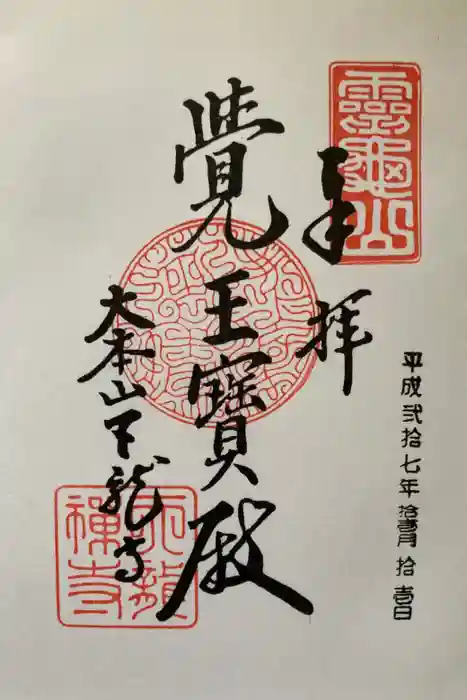 靈龜山
奉拝
平成弐拾七年拾壱月拾壱日
覺王寶殿
大本山天龍寺
天龍禅寺